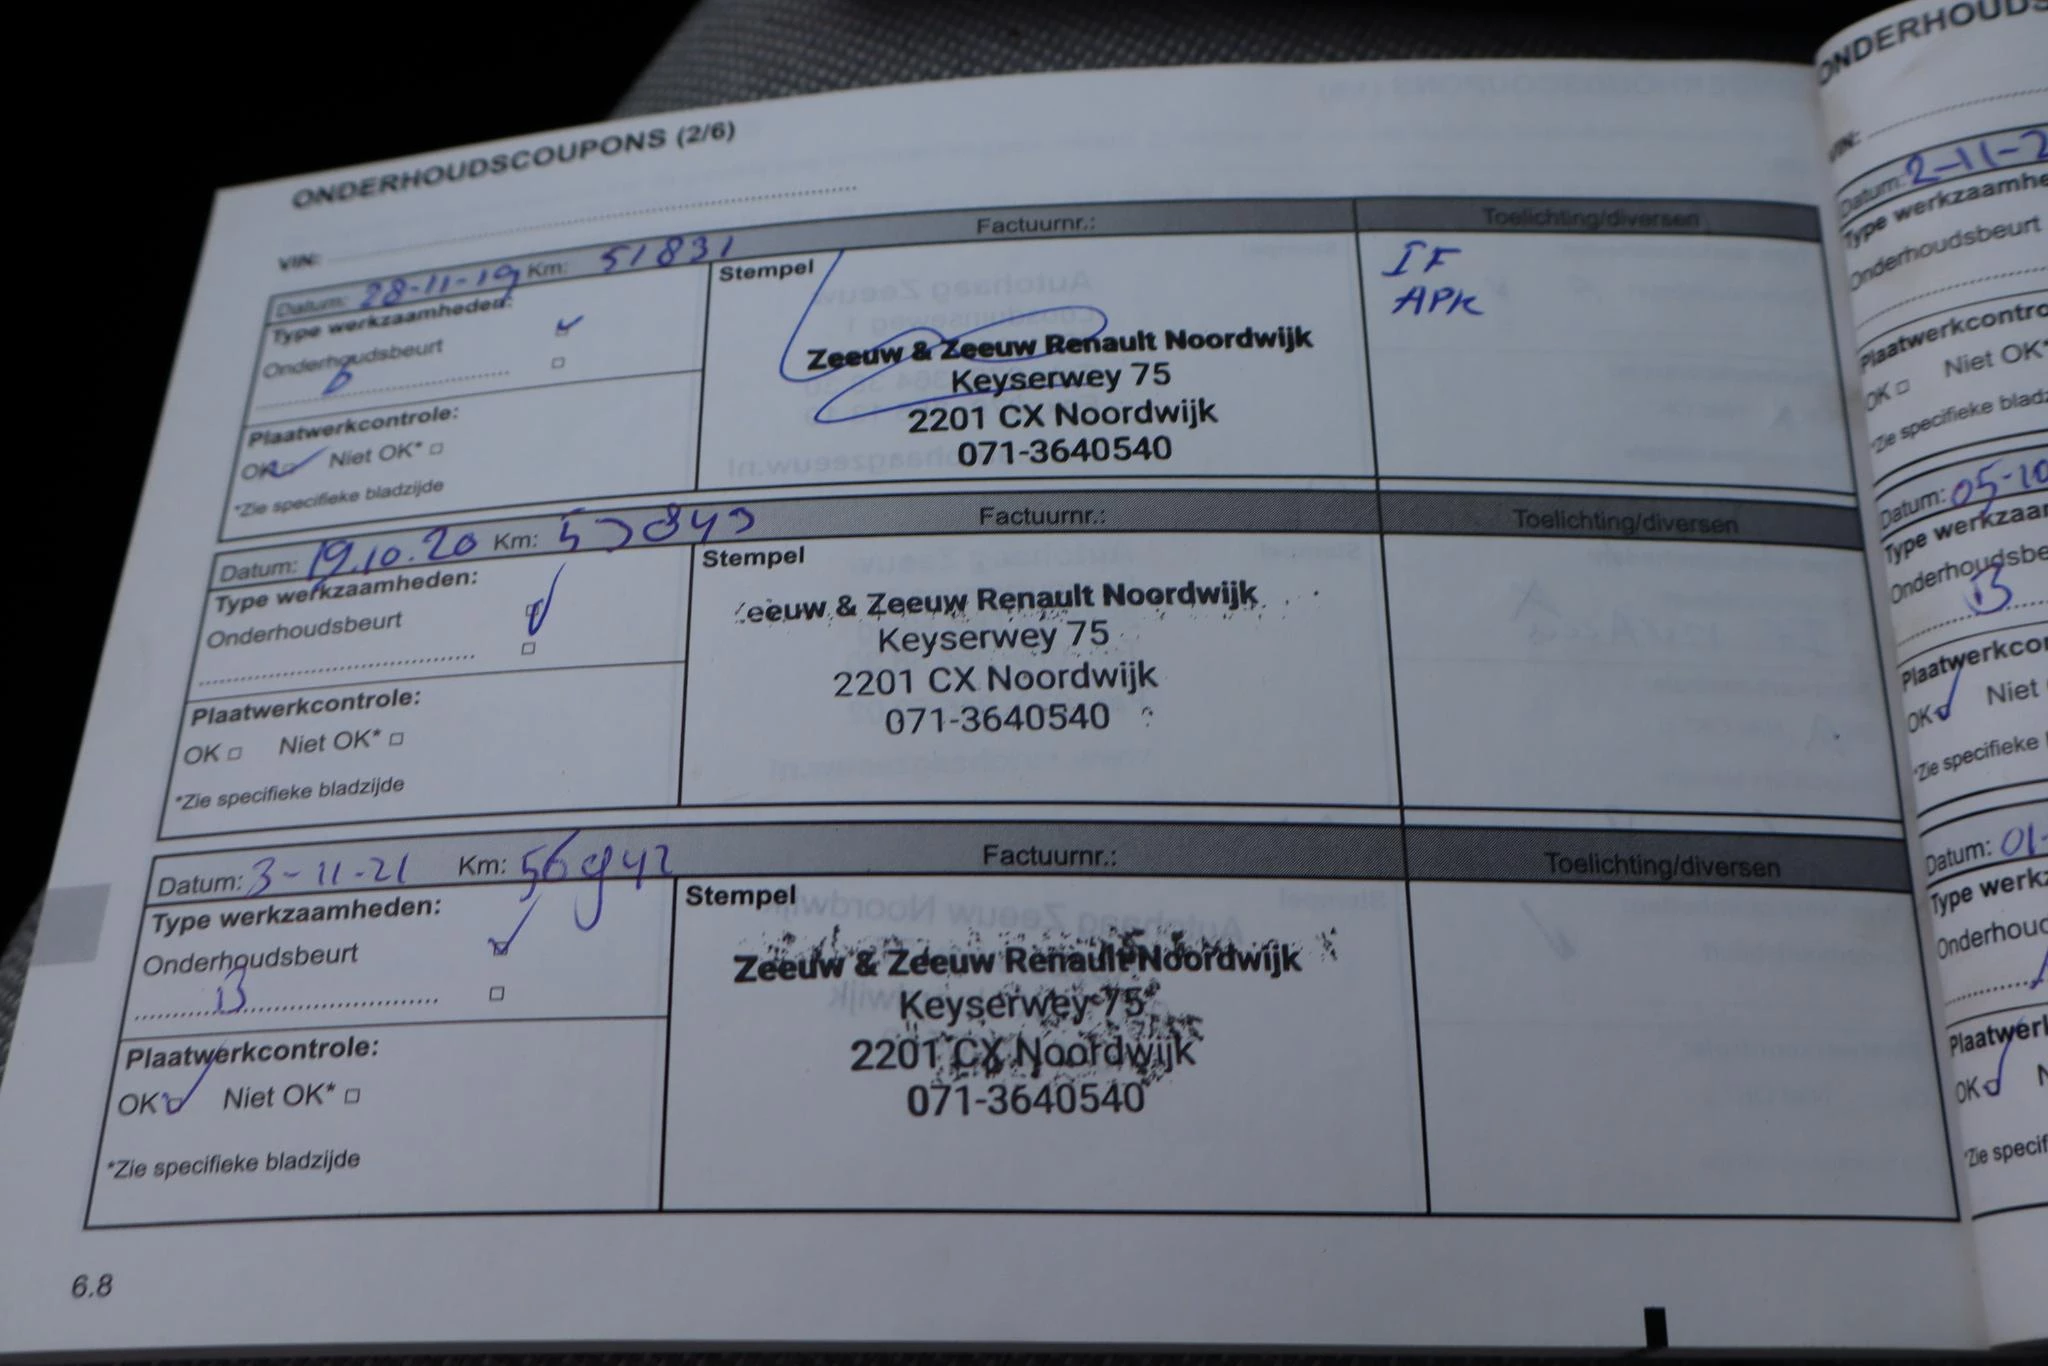 ONDERHOUDSCOUPONS (2/6)
VIN:
Datum: 28-11-19 Km: 51831 Factuurnr.: Toelichting/diversen
Type werkzaamheden:
Onderhoudsbeurt
Plaatwerkcontrole:
OK Niet OK*
*Zie specifieke bladzijde
Stempel
Zeeuw & Zeeuw Renault Noordwijk
Keyserwey 75
2201 CX Noordwijk
071-3640540
IF
APK
Datum: 19.10.20 Km: Factuurnr.: Toelichting/diversen
Type werkzaamheden:
Onderhoudsbeurt
Plaatwerkcontrole:
OK Niet OK*
*Zie specifieke bladzijde
Stempel
eeuw & Zeeuw Renault Noordwijk
Keyserwey 75
2201 CX Noordwijk
071-3640540
Datum: 3-11-21 Km: 56942 Factuurnr.: Toelichting/diversen
Type werkzaamheden:
Onderhoudsbeurt
B
Plaatwerkcontrole:
OK Niet OK*
*Zie specifieke bladzijde
Stempel
Zeeuw & Zeeuw Renault Noordwijk
Keyserwey 75
2201 CX Noordwijk
071-3640540
6.8
ONDERHOUDS
VIN:
Datum: 2-11-2
Type werkzaamhe
Onderhoudsbeurt
Plaatwerkcontro
OK Niet OK*
*Zie specifieke bladz
Datum: 05-10
Type werkzaa
Onderhoudsbe
B
Plaatwerkcor
OK Niet
*Zie specifieke
Datum: 01-
Type werkz
Onderhoud
Plaatwerl
OK N
*Zie specif